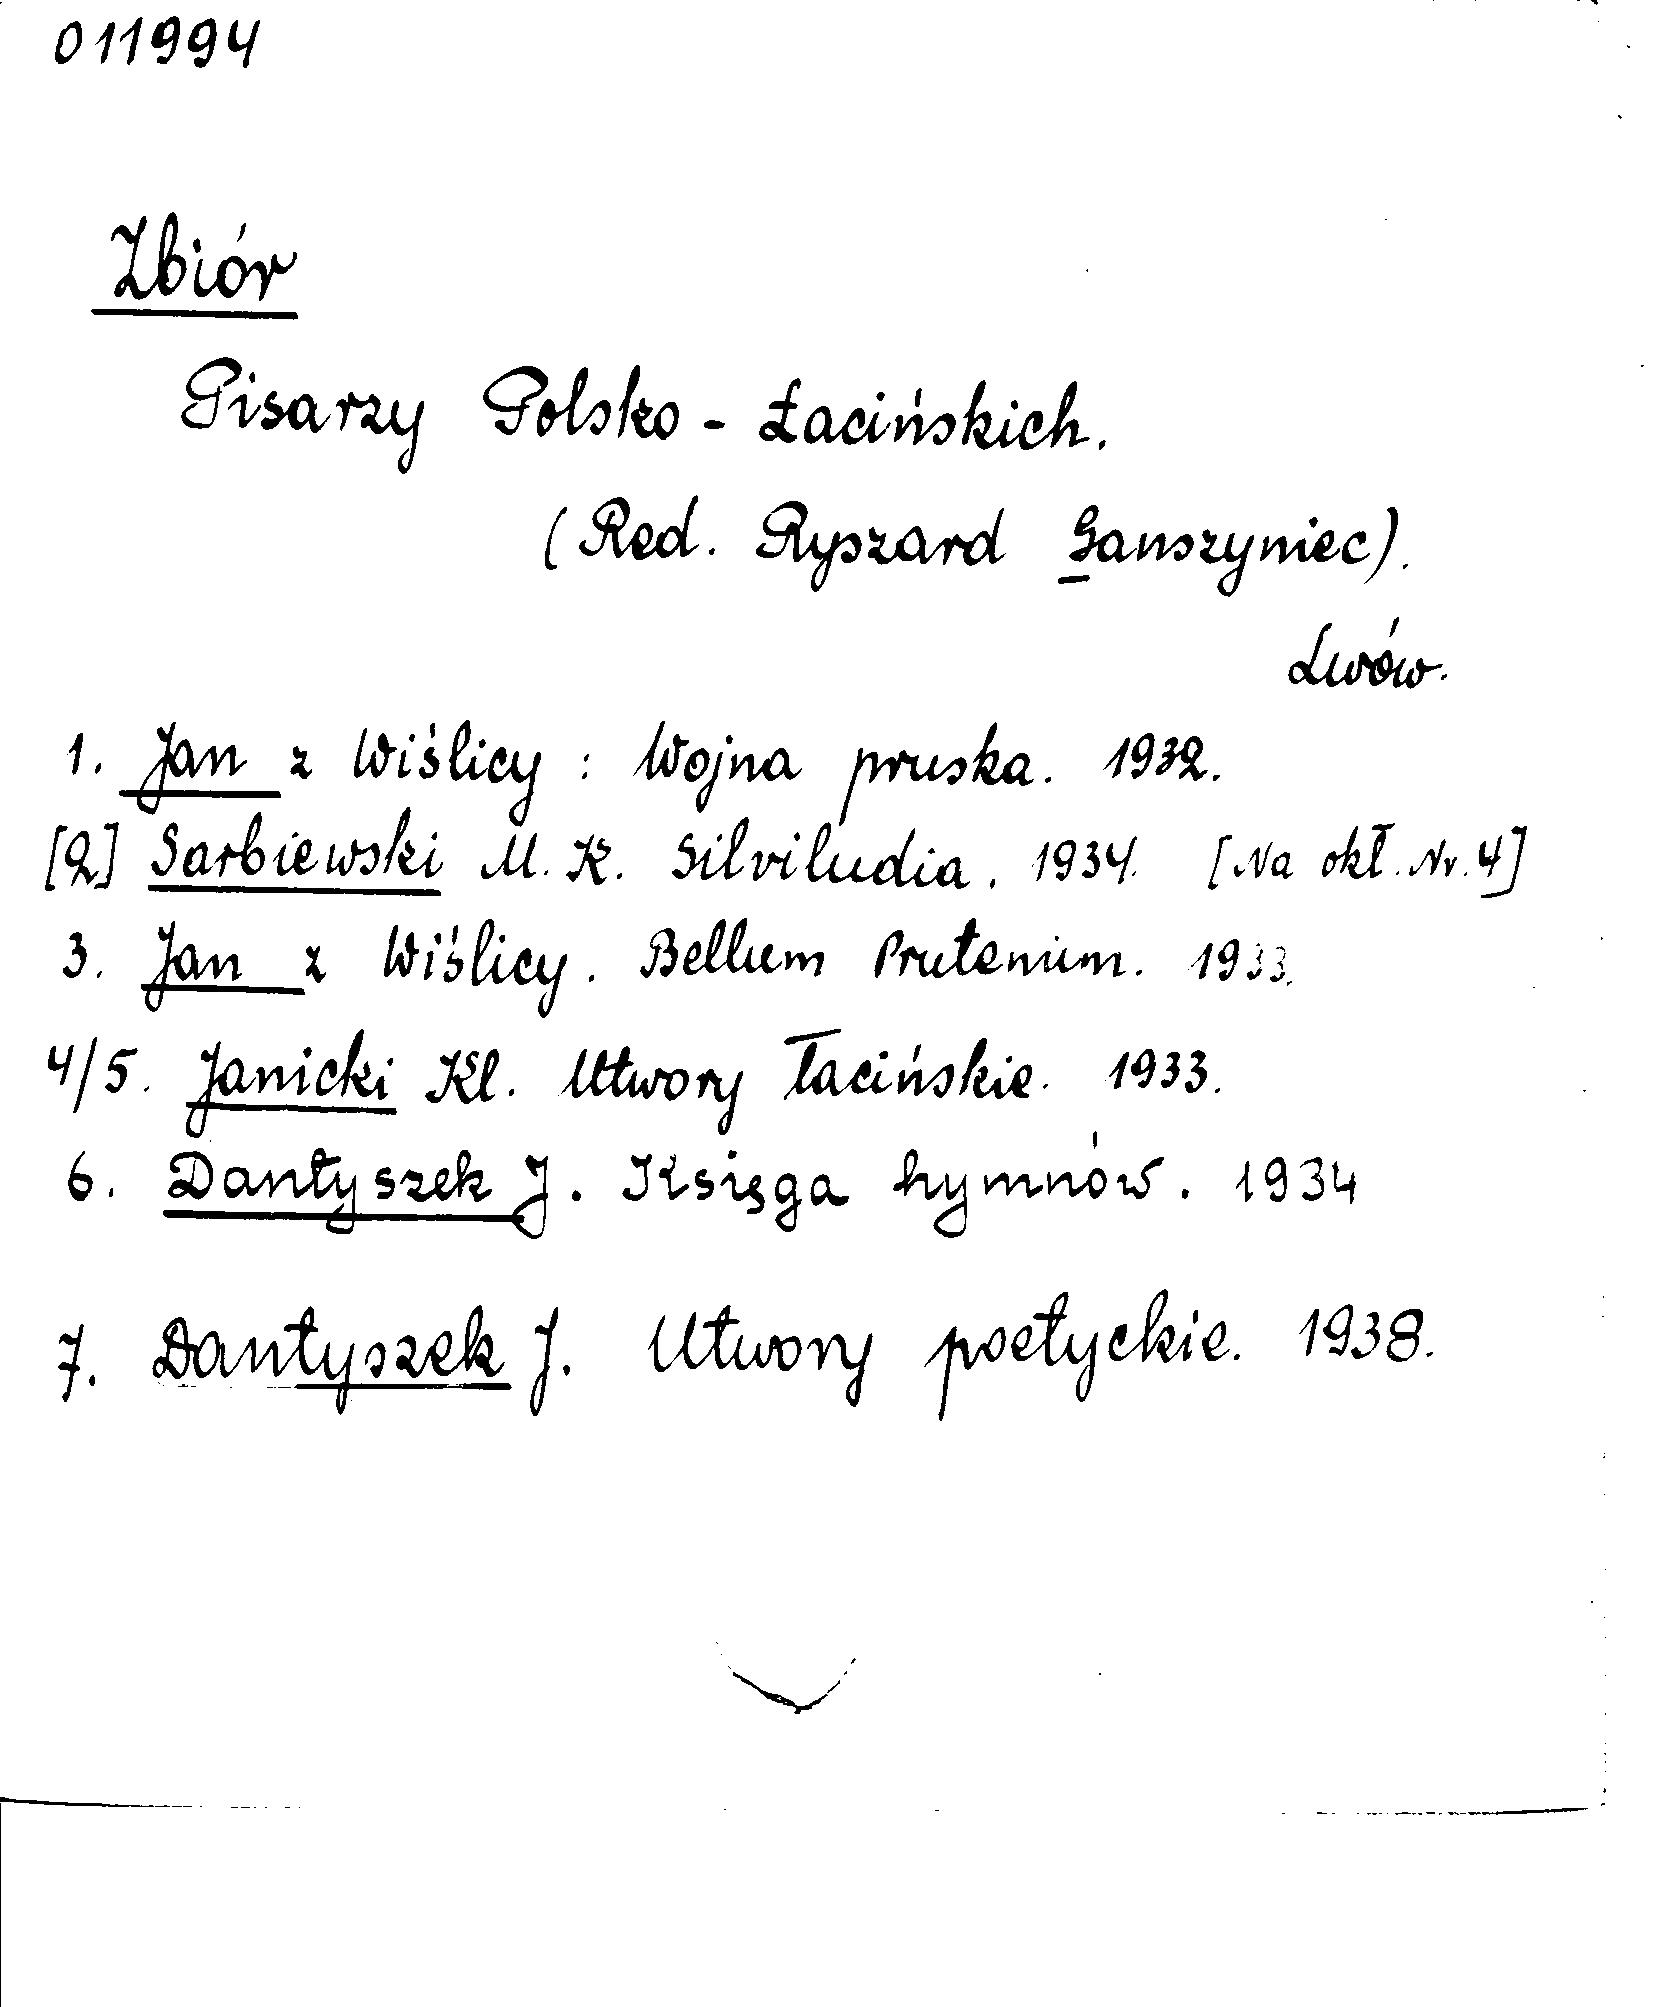 011994
Zbiór
Pisarzy Polsko - Łacińskich.
(Red. Ryszard Ganszyniec).
Lwów.
1. Jan z Wiślicy : Wojna pruska. 1932.
[2] Sarbiewski M. K. Silviludia. 1934. [Na okł. Nr. 4]
3. Jan z Wiślicy. Bellum Prutenum. 1933.
4/5. Janicki Kl. Utwory łacińskie. 1933.
6. Dantyszek J. Księga hymnów. 1934
7. Dantyszek J. Utwory poetyckie. 1938.